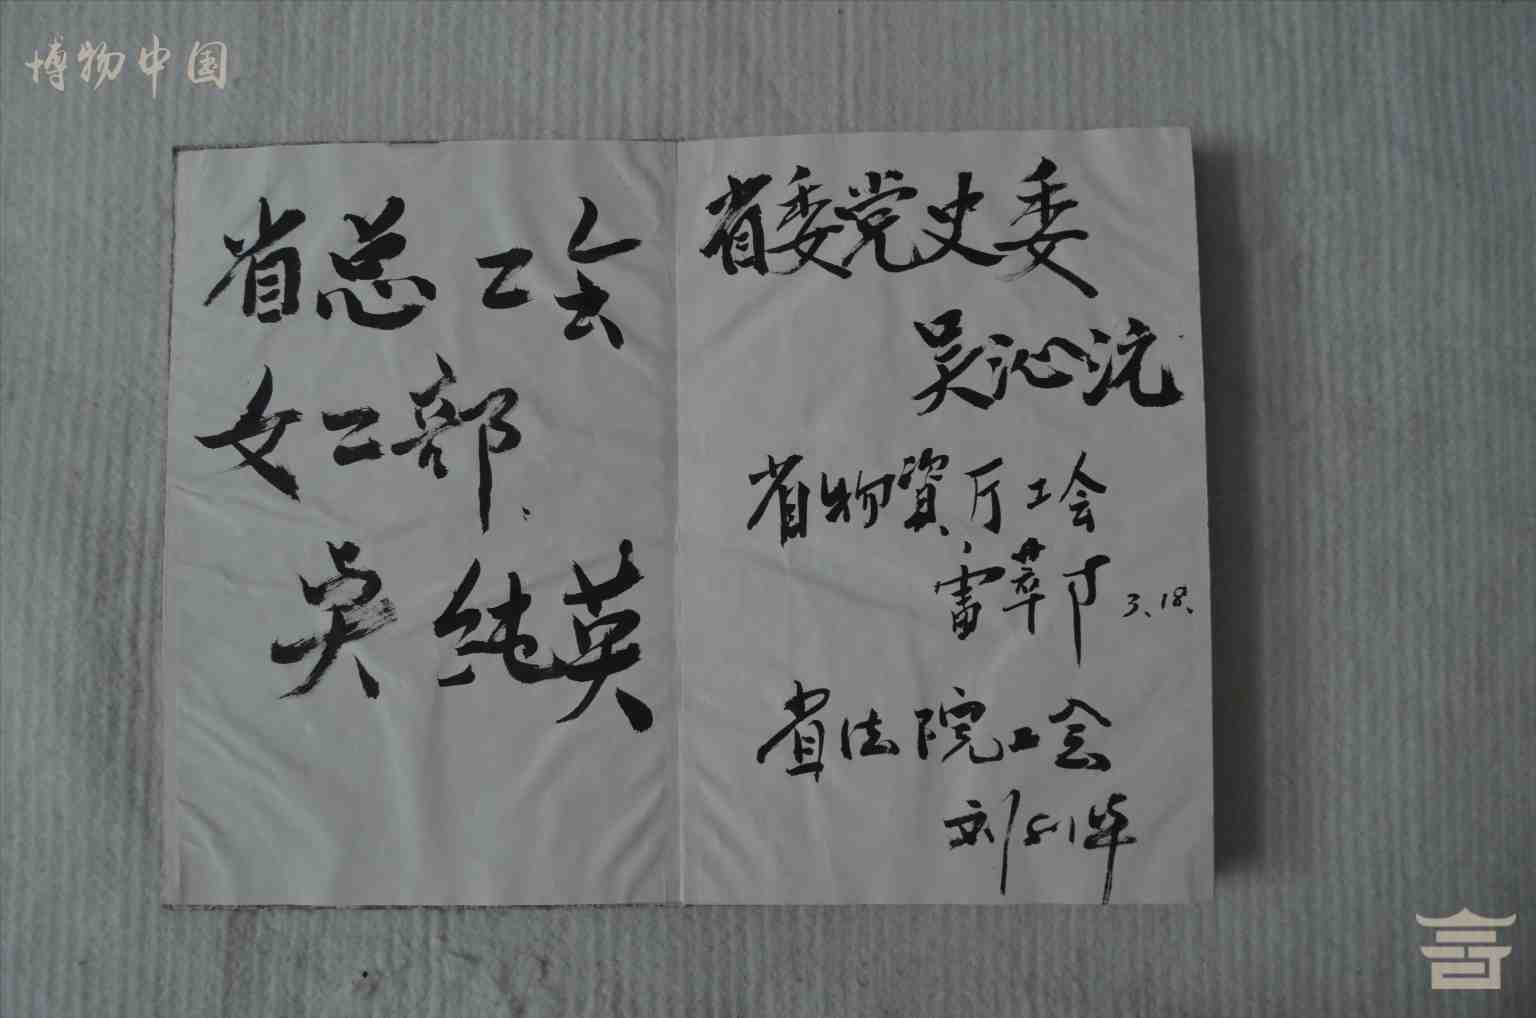 博物中国
省总工会
女工部、
吴纯英
省委党史委
吴沁沅
省物資厅工会
雷萃邨 3.18.
省法院工会
刘列华